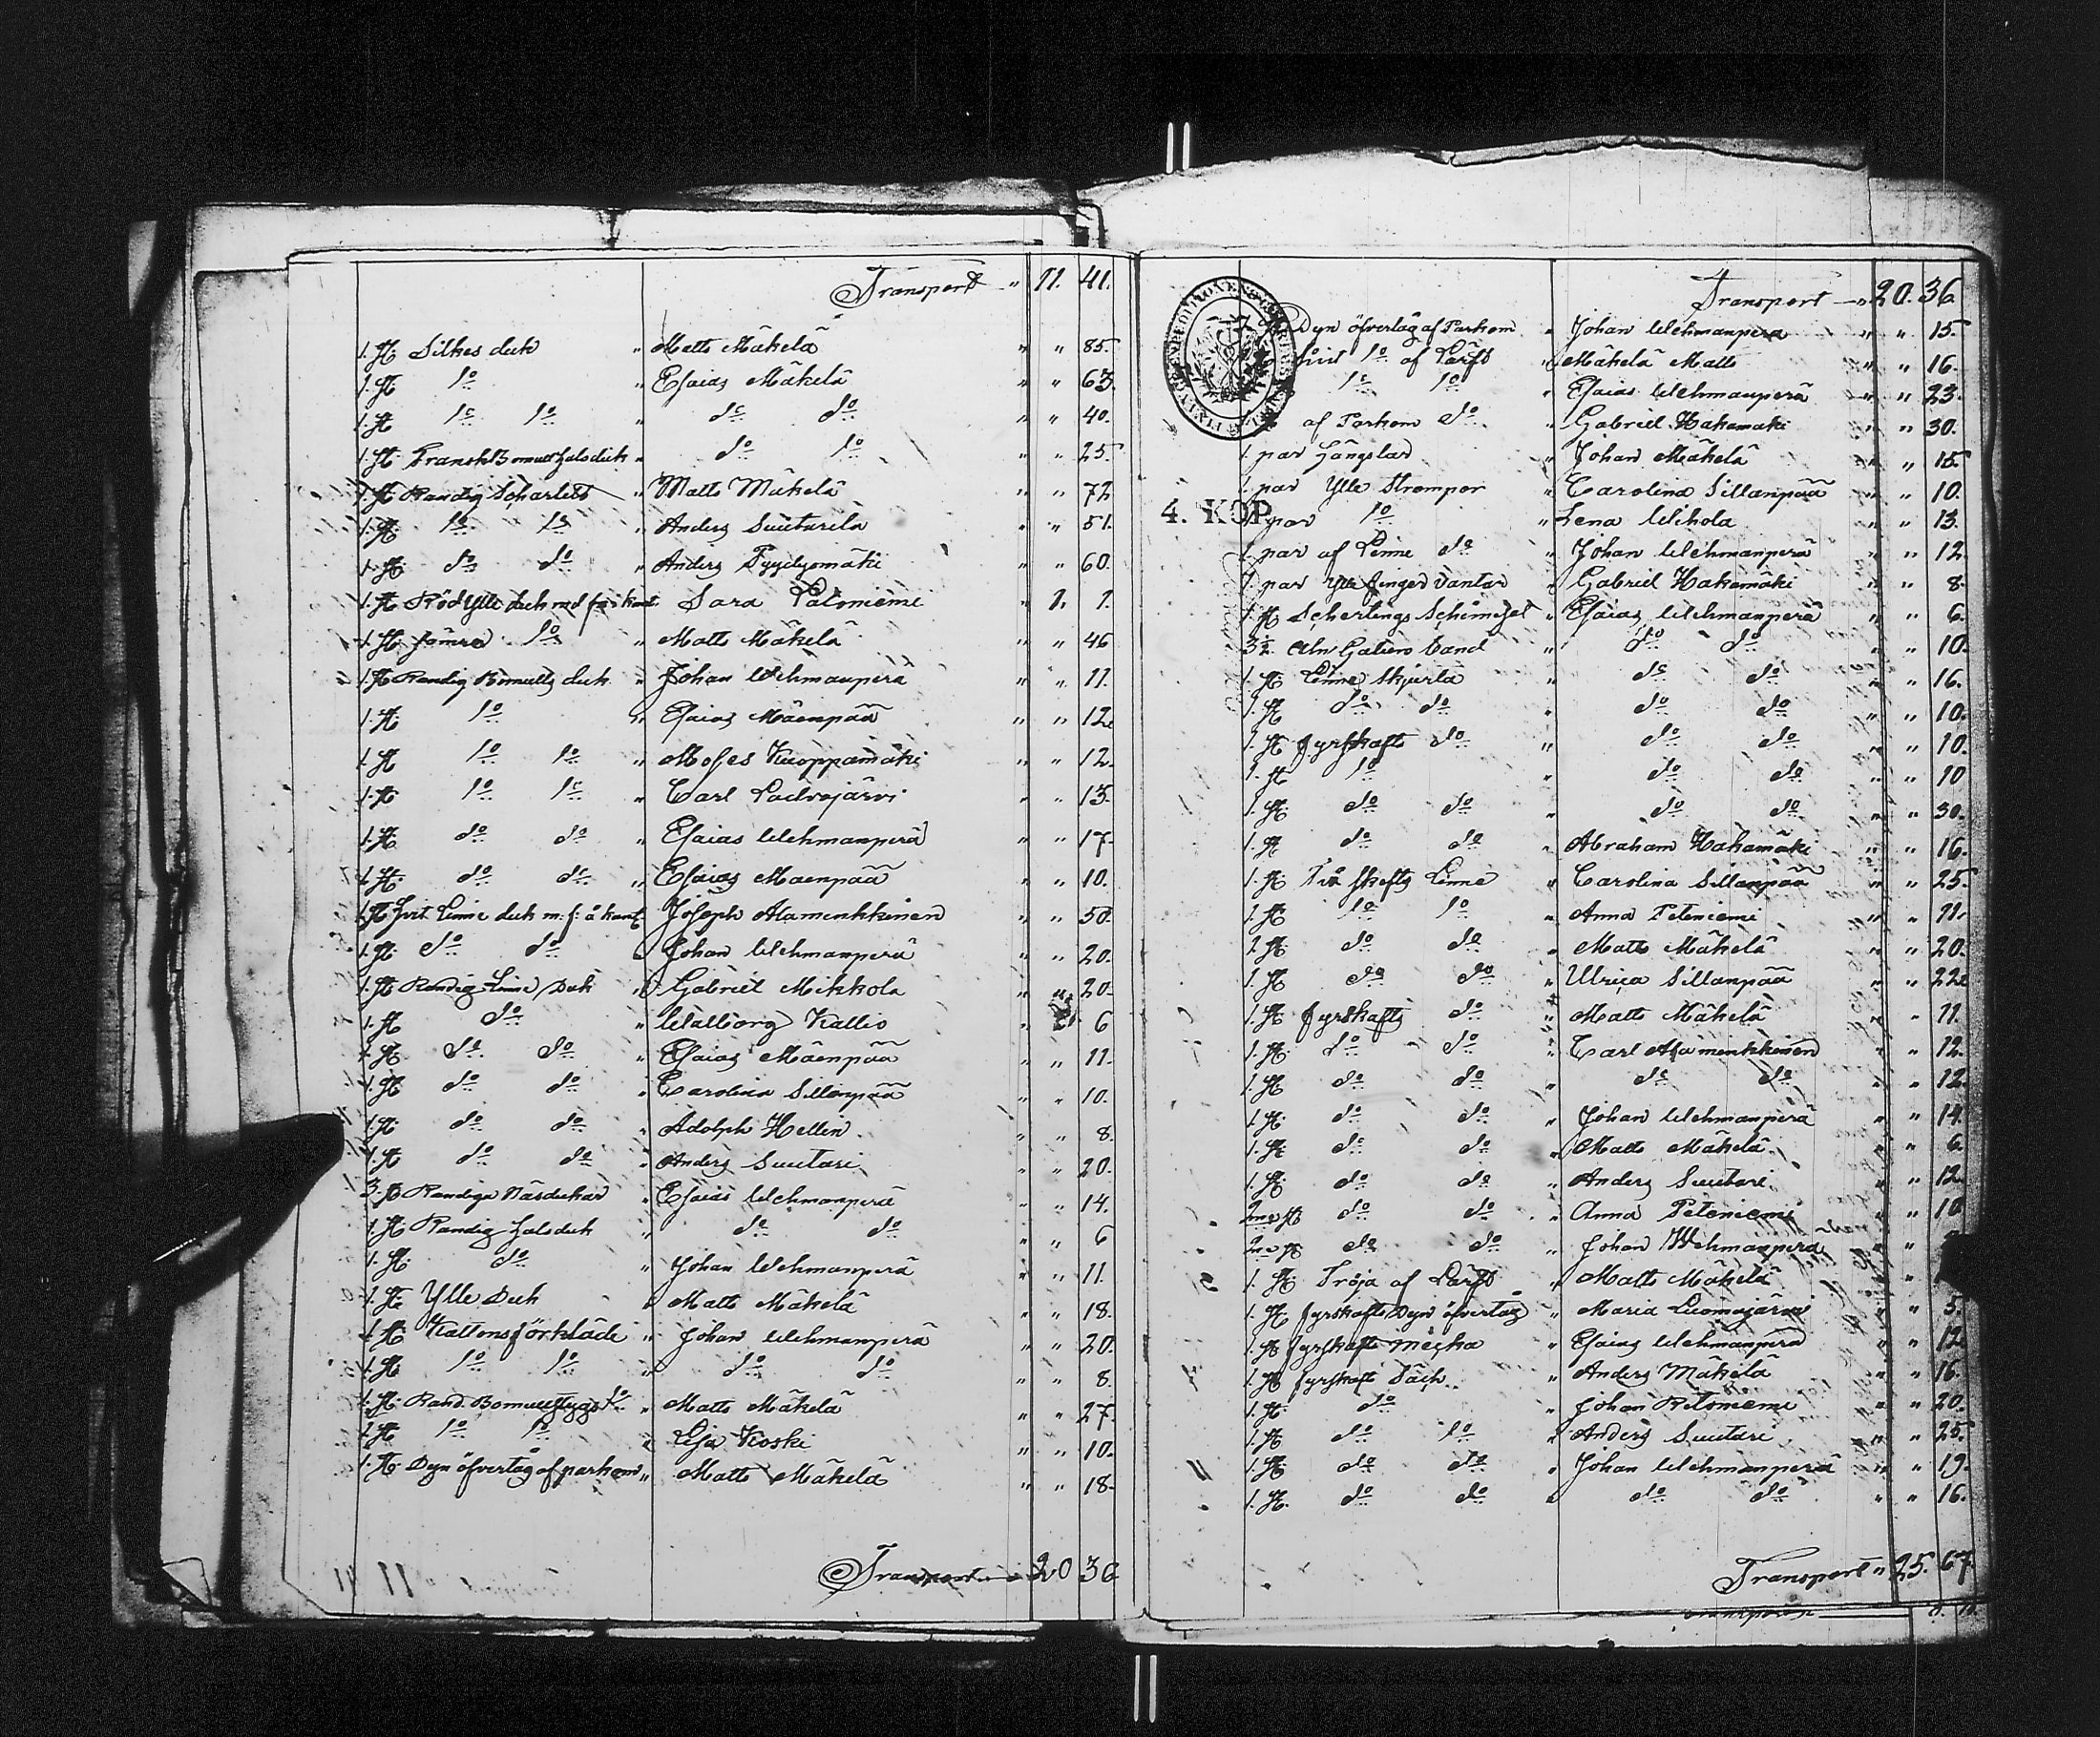 Transport " 11. 41.
1. St. Silkes duk " Matts Mäkelä " " 85.
1. St do " Esaias Mäkelä " " 63.
1. St do do " do do " " 40.
1. St. Fransk Bomull halsduk " do do " " 25.
1. St Randig " Matts Mäkelä " " 72
1. St do do " Anders Suutarila " " 51.
1. St. do do " Anders " " 60.
1. St Röd Ylle duk med Sara " 1. 1.
1. St. sämre do " Matts Mäkelä " " 46
1. St Randig Bomulls duk " Johan Wehmanperä " " 11.
1. St do " Esaias Mäenpää " " 12.
1. St do do " Moses Kuoppamäki " " 12.
1. St do do " Carl " " 13.
1. St do do " Esaias Wehmanperä " " 17.
1. St. do do " Esaias Mäenpää " " 10.
1. St hvit Linne duk m: f: å kant. Joseph Alamenkkinen " " 50.
1. St. do do " Johan Wehmanperä " " 20.
1. St Randig Linne Duk " Gabriel Mikkola " " 20.
1. St do " Walborg Kallio " " 6
1. St do do " Esaias Mäenpää " " 11.
1. St do do " Carolina Sillanpää " " 10.
1. St. do do " Adolph Hellen " " 8.
1. St do do " Anders Suutari " " 20.
3. St Randiga Näsdukar " Esaias Wehmanperä " " 14.
1. St Randig halsduk " do do " " 6
1. St. do " Johan Wehmanperä " " 11.
1. St. Ylle Duk " Matts Mäkelä " " 18.
1. St Kattons förkläde " Johan Wehmanperä " " 20.
1. St do do " do do " " 8.
1. St. Rand. Bomullstygs do " Matts Mäkelä " " 27
1. St do do " Lisa Koski " " 10.
1. St. Dyn öfvertåg af parkom " Matts Mäkelä " " 18.
Transport " 20 36
Transport " 20. 36
Dyn öfvertåg af Parkom " Johan Wehmanperä " " 15.
do af Lärft " Mäkelä Matts " " 16.
do do " Esaias Wehmanperä " " 23.
af Parkom do " Gabriel Hakamäki " " 30.
1. par hängslar " Johan Mäkelä " " 15
1. par Ylle Strumpor " Carolina Sillanpää " " 10.
4. KOP
1 par do " Lena Wihola " " 13.
1. par af Linne do " Johan Wehmanperä " " 12.
1 par Ylle finger Vantar " Gabriel Hakamäki " " 8.
1. St " Esaias Wehmanperä " " 6.
3½. Aln band " do do " " 10.
1. St. Linne Skjorta " do do " " 16.
1. St do do " do do " " 10.
1. St fyrskafts do " do do " " 10.
1. St do " do do " " 10
1. St. do do " do do " " 30.
1. St do do " Abraham Hakamäki " " 16.
1. St Två skafts Linne " Carolina Sillanpää " " 25.
1. St do do " Anna Peteniemi " " 11.
1. St. do do " Matts Mäkelä " " 20.
1. St do do " Ulrica Sillanpää " " 22.
1. St fyrskafts do " Matts Mäkelä " " 11.
1. St. do do " Carl Alamenkkinen " " 12.
1. St do do " do do " " 12.
1. St. do do " Johan Wehmanperä " " 14.
1. St. do do " Matts Mäkelä " " 6.
1. St. do do " Anders Suutari " " 12.
2ne St do do " Anna Peteniemi " " 10
2ne St do do " Johan Wehmanperä "
1. St. Tröja af Lärft " Matts Mäkelä "
1. St fyrskafts Dyn öfvertåg " Maria Luomajärvi " " 5.
1. St fyrskafts " Esaias Wehmanperä " " 12
1. St fyrskaft " Anders Mäkelä " " 16.
1. St do " Johan " " 20.
1. St do do " Anders Suutari " " 25.
1. St do do " Johan Wehmanperä " " 19.
1. St. do do " do do " " 16.
Transport " 25. 67